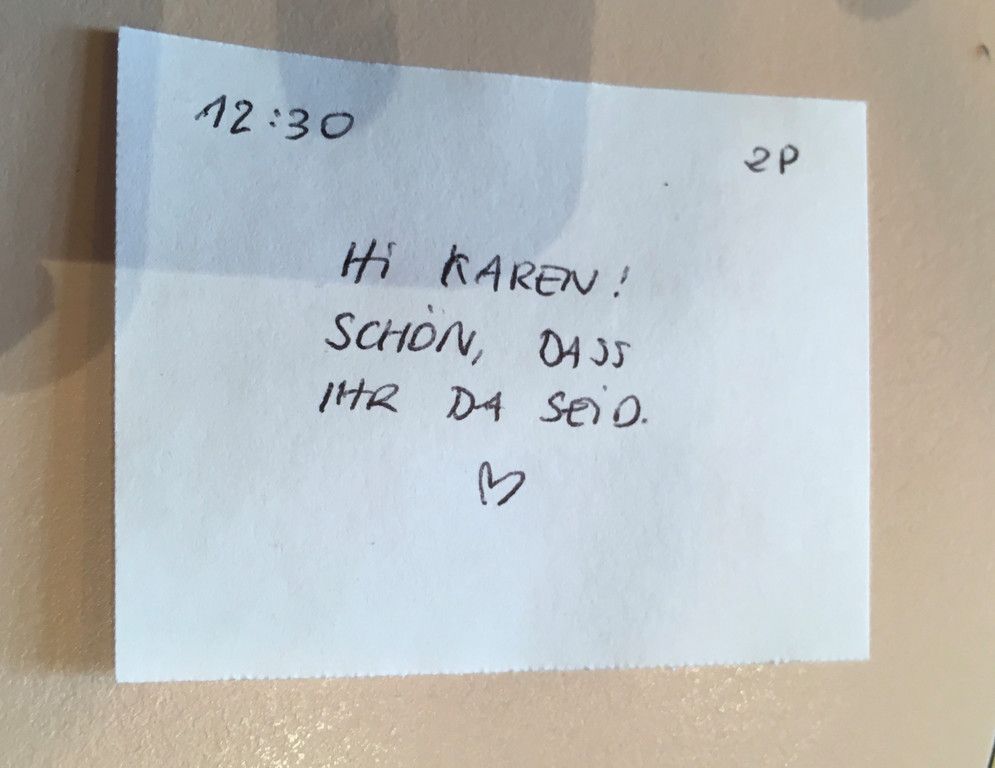 12:30
2P
Hi KAREN!
SCHÖN, DASS
IHR DA SEiD.